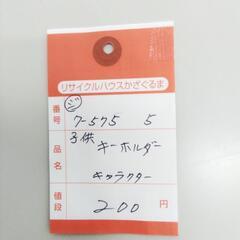 リサイクルハウスかざぐるま
番号 ジ 7-575 5
品名 子供 キーホルダー
キャラクター
値段 200 円